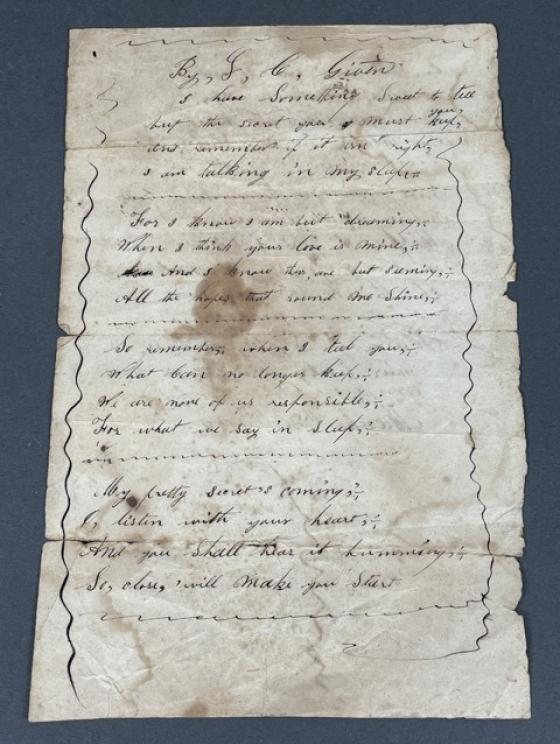 By, S, C, Given
I have Something Sweet to tell
but the secret you must keep,
you,
and remember if it isn't right,
I am talking in my sleep
For I know I am but dreaming,
When I think your love is mine,
And I know they, are but seeming,
All the hopes that round me Shine,
So remember, when I tell you,
What Can no longer keep,
We are none of us responsible,
For what we say in sleep,
My pretty secret's coming,
O, listen with your heart,
And you Shall hear it humming,
So, close, 'twill Make you Start